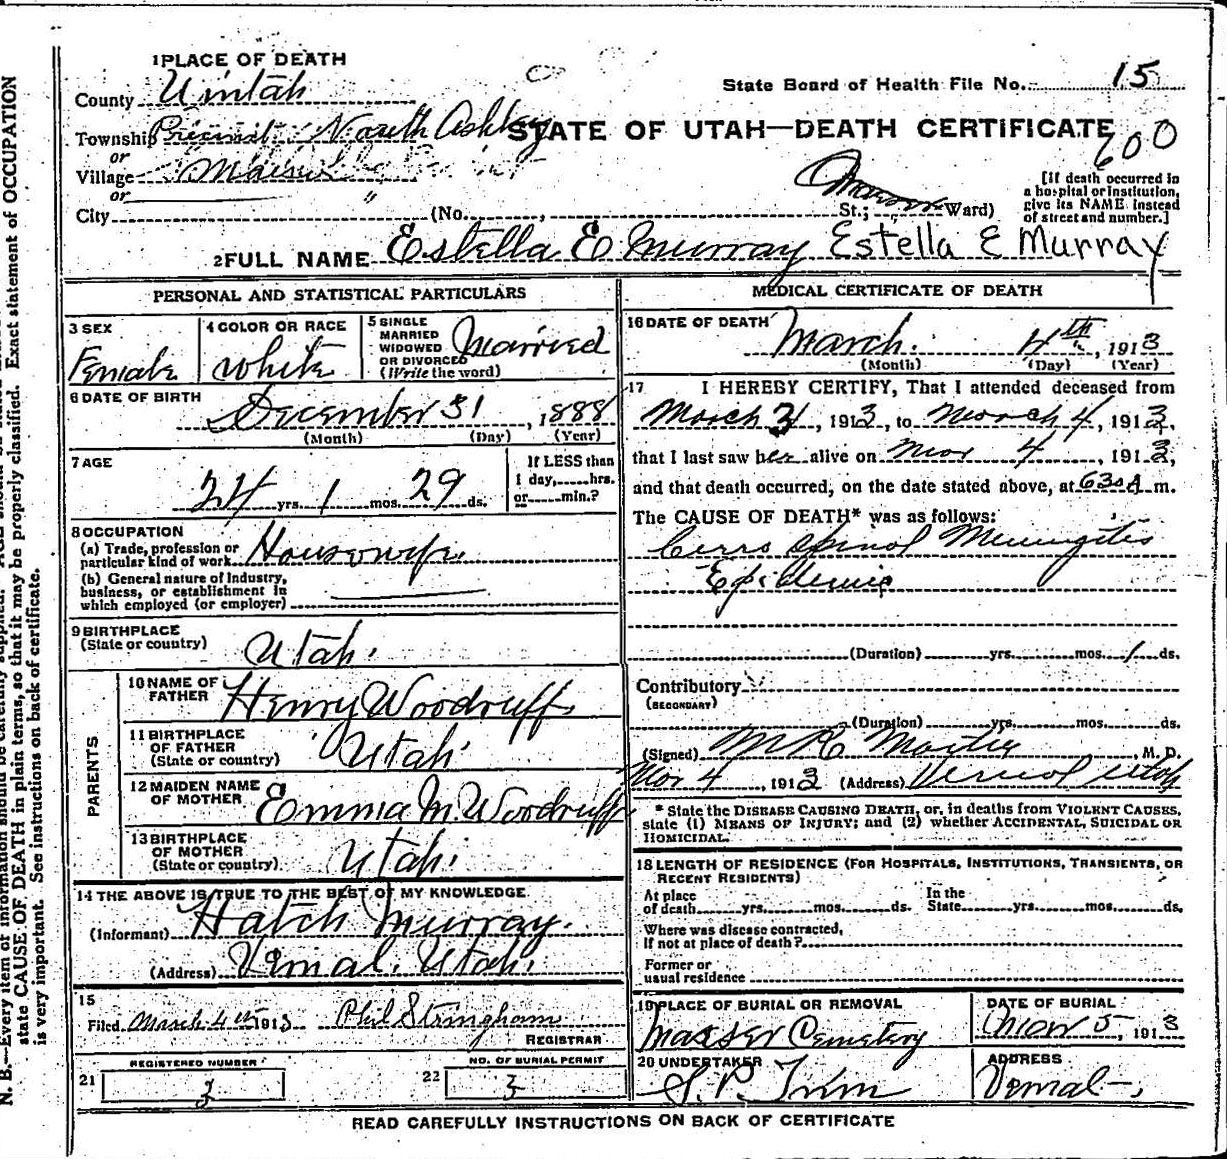 1 PLACE OF DEATH
County Uintah
State Board of Health File No. 15
Township Precinct North Ashley
STATE OF UTAH—DEATH CERTIFICATE
600
or
Village
or
City (No. , St.; Ward)
[If death occurred in
a hospital or institution,
give its NAME instead
of street and number.]
2 FULL NAME Estella E Murray Estella E Murray
PERSONAL AND STATISTICAL PARTICULARS
3 SEX
Female
4 COLOR OR RACE
White
5 SINGLE
MARRIED
WIDOWED
OR DIVORCED
(Write the word)
Married
6 DATE OF BIRTH
December 31, 1888
(Month) (Day) (Year)
7 AGE
24 yrs. 1 mos. 29 ds.
If LESS than
1 day, hrs.
or min.?
8 OCCUPATION
(a) Trade, profession or
particular kind of work Housewife
(b) General nature of Industry,
business, or establishment in
which employed (or employer)
9 BIRTHPLACE
(State or country)
Utah.
PARENTS
10 NAME OF
FATHER
Henry Woodruff
11 BIRTHPLACE
OF FATHER
(State or country)
Utah
12 MAIDEN NAME
OF MOTHER
Emma M. Woodruff
13 BIRTHPLACE
OF MOTHER
(State or country)
Utah.
14 THE ABOVE IS TRUE TO THE BEST OF MY KNOWLEDGE
(Informant) Hatch Murray.
(Address) Vernal, Utah.
15
Filed March 4th 1913 Phil Stringham
REGISTRAR
REGISTERED NUMBER
21 3
NO. OF BURIAL PERMIT
22 3
MEDICAL CERTIFICATE OF DEATH
16 DATE OF DEATH
March. 4th, 1913
(Month) (Day) (Year)
17 I HEREBY CERTIFY, That I attended deceased from
March 3, 1913, to March 4, 1913,
that I last saw her alive on Mar 4, 1913,
and that death occurred, on the date stated above, at 630 A m.
The CAUSE OF DEATH* was as follows:
Cerro Spinal Meningitis
Epidemic
(Duration) yrs. mos. 1 ds.
Contributory
(SECONDARY)
(Duration) yrs. mos. ds.
(Signed) M. D.
Mar 4, 1913 (Address) Vernal Utah
* State the DISEASE CAUSING DEATH, or, in deaths from VIOLENT CAUSES,
state (1) MEANS OF INJURY; and (2) whether ACCIDENTAL, SUICIDAL OR
HOMICIDAL.
18 LENGTH OF RESIDENCE (FOR HOSPITALS, INSTITUTIONS, TRANSIENTS, OR
RECENT RESIDENTS)
At place
of death yrs. mos. ds.
In the
State yrs. mos. ds.
Where was disease contracted,
if not at place of death?
Former or
usual residence
19 PLACE OF BURIAL OR REMOVAL
Maeser Cemetery
DATE OF BURIAL
Mar 5, 1913
20 UNDERTAKER
S. P.
ADDRESS
Vernal
READ CAREFULLY INSTRUCTIONS ON BACK OF CERTIFICATE
N. B.—Every item of information should be carefully supplied.
state CAUSE OF DEATH in plain terms, so that it may be properly classified. Exact statement of OCCUPATION
is very important. See instructions on back of certificate.